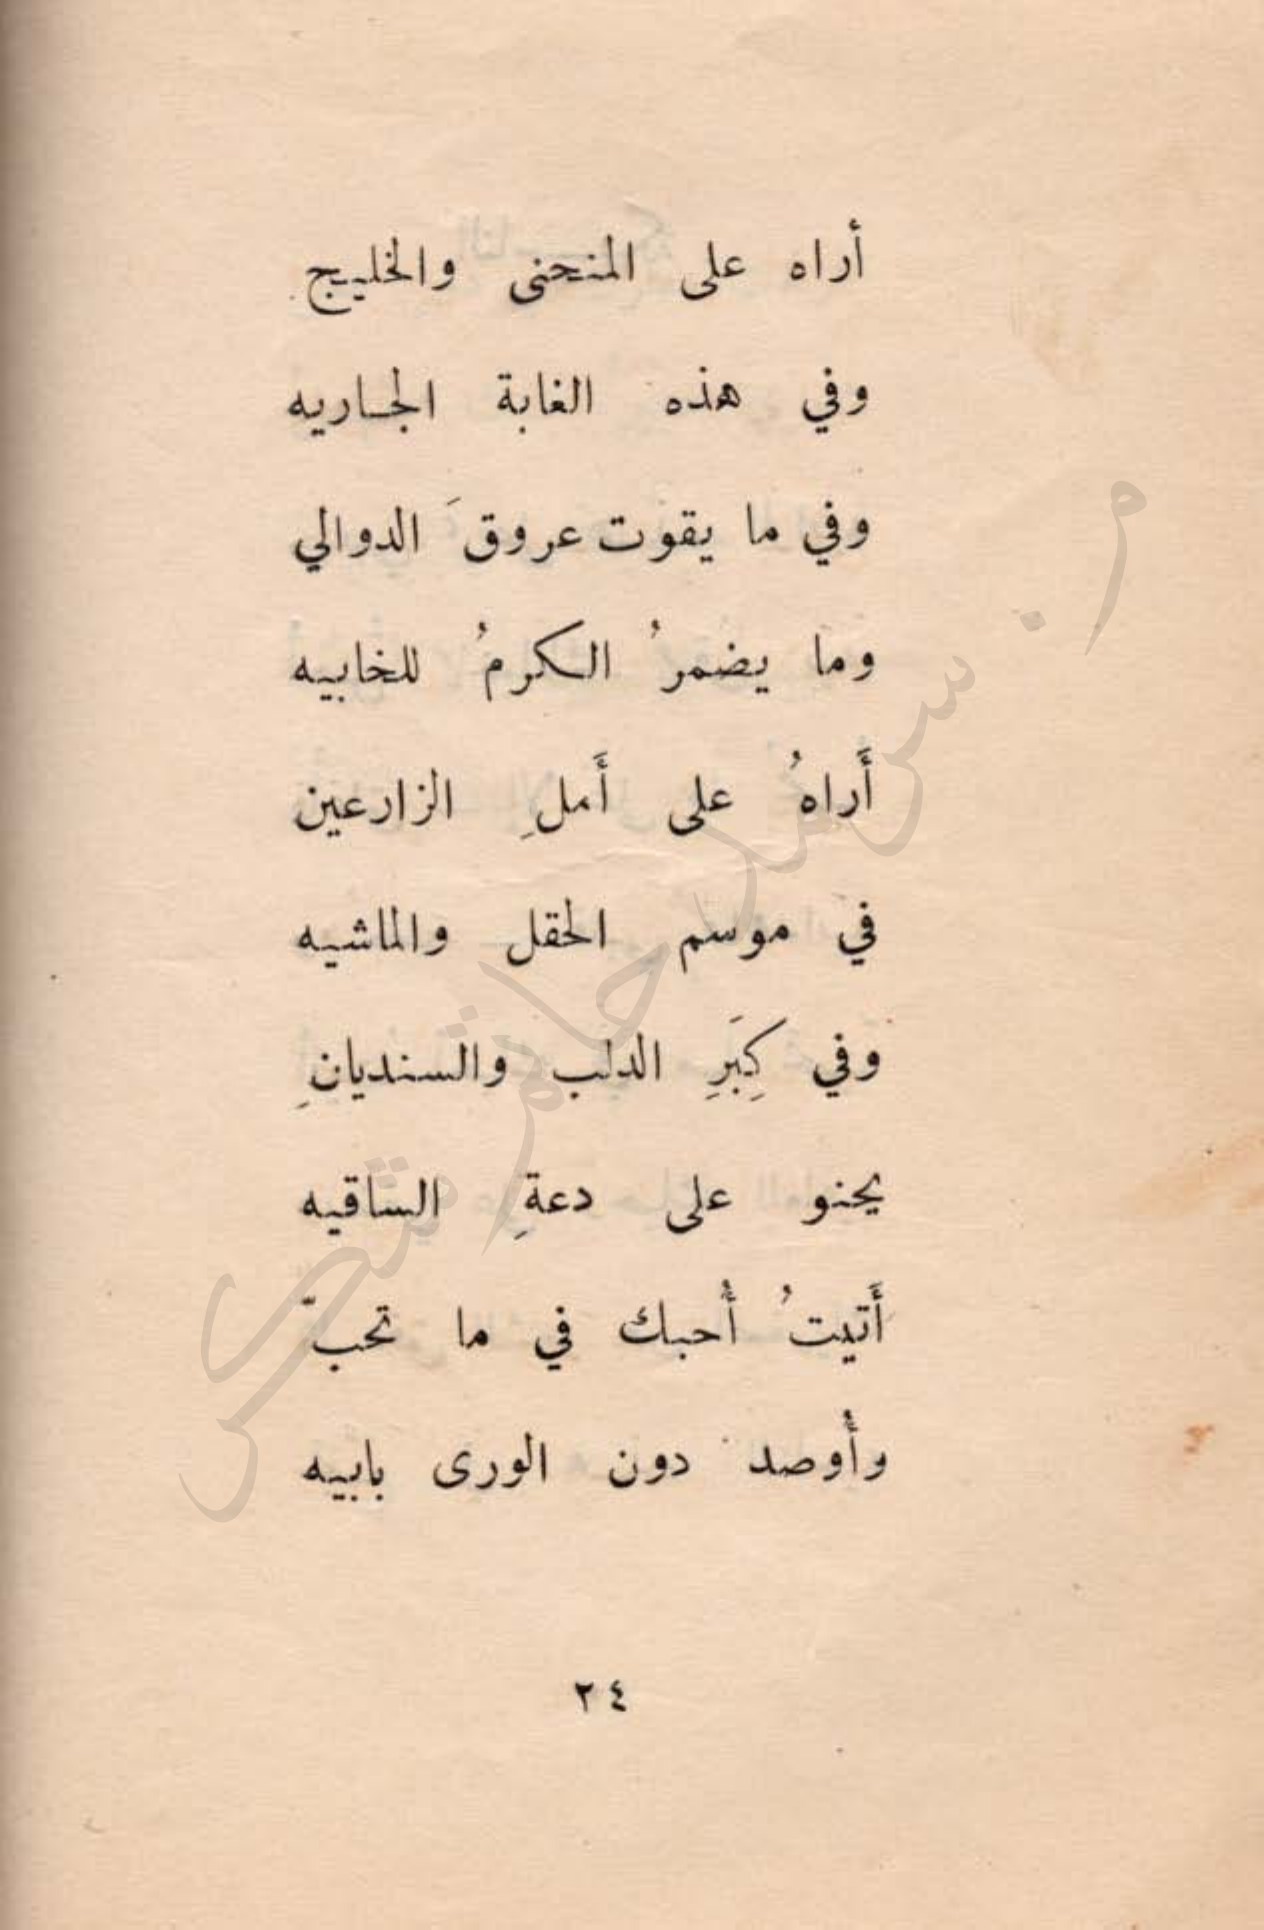 أراه على المنحنى والخليج
وفي هذه الغابة الجاريه
وفي ما يقوت عروقَ الدوالي
وما يضمرُ الكرمُ للخابيه
أَراهُ على أَملِ الزارعين
في موسم الحقل والماشيه
وفي كِبَرِ الدلب والسنديانِ
يحنو على دعةِ الساقيه
أَتيتُ أُحبك في ما تحبّ
وأُوصد دون الورى بابيه
٢٤